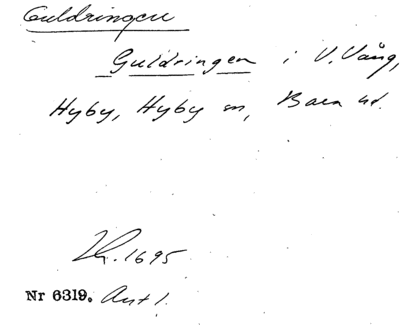 Guldringen
Guldringen i V. Vång,
Hyby, Hyby sn, Bara hd.
1695
Nr 6319. Ant 1.